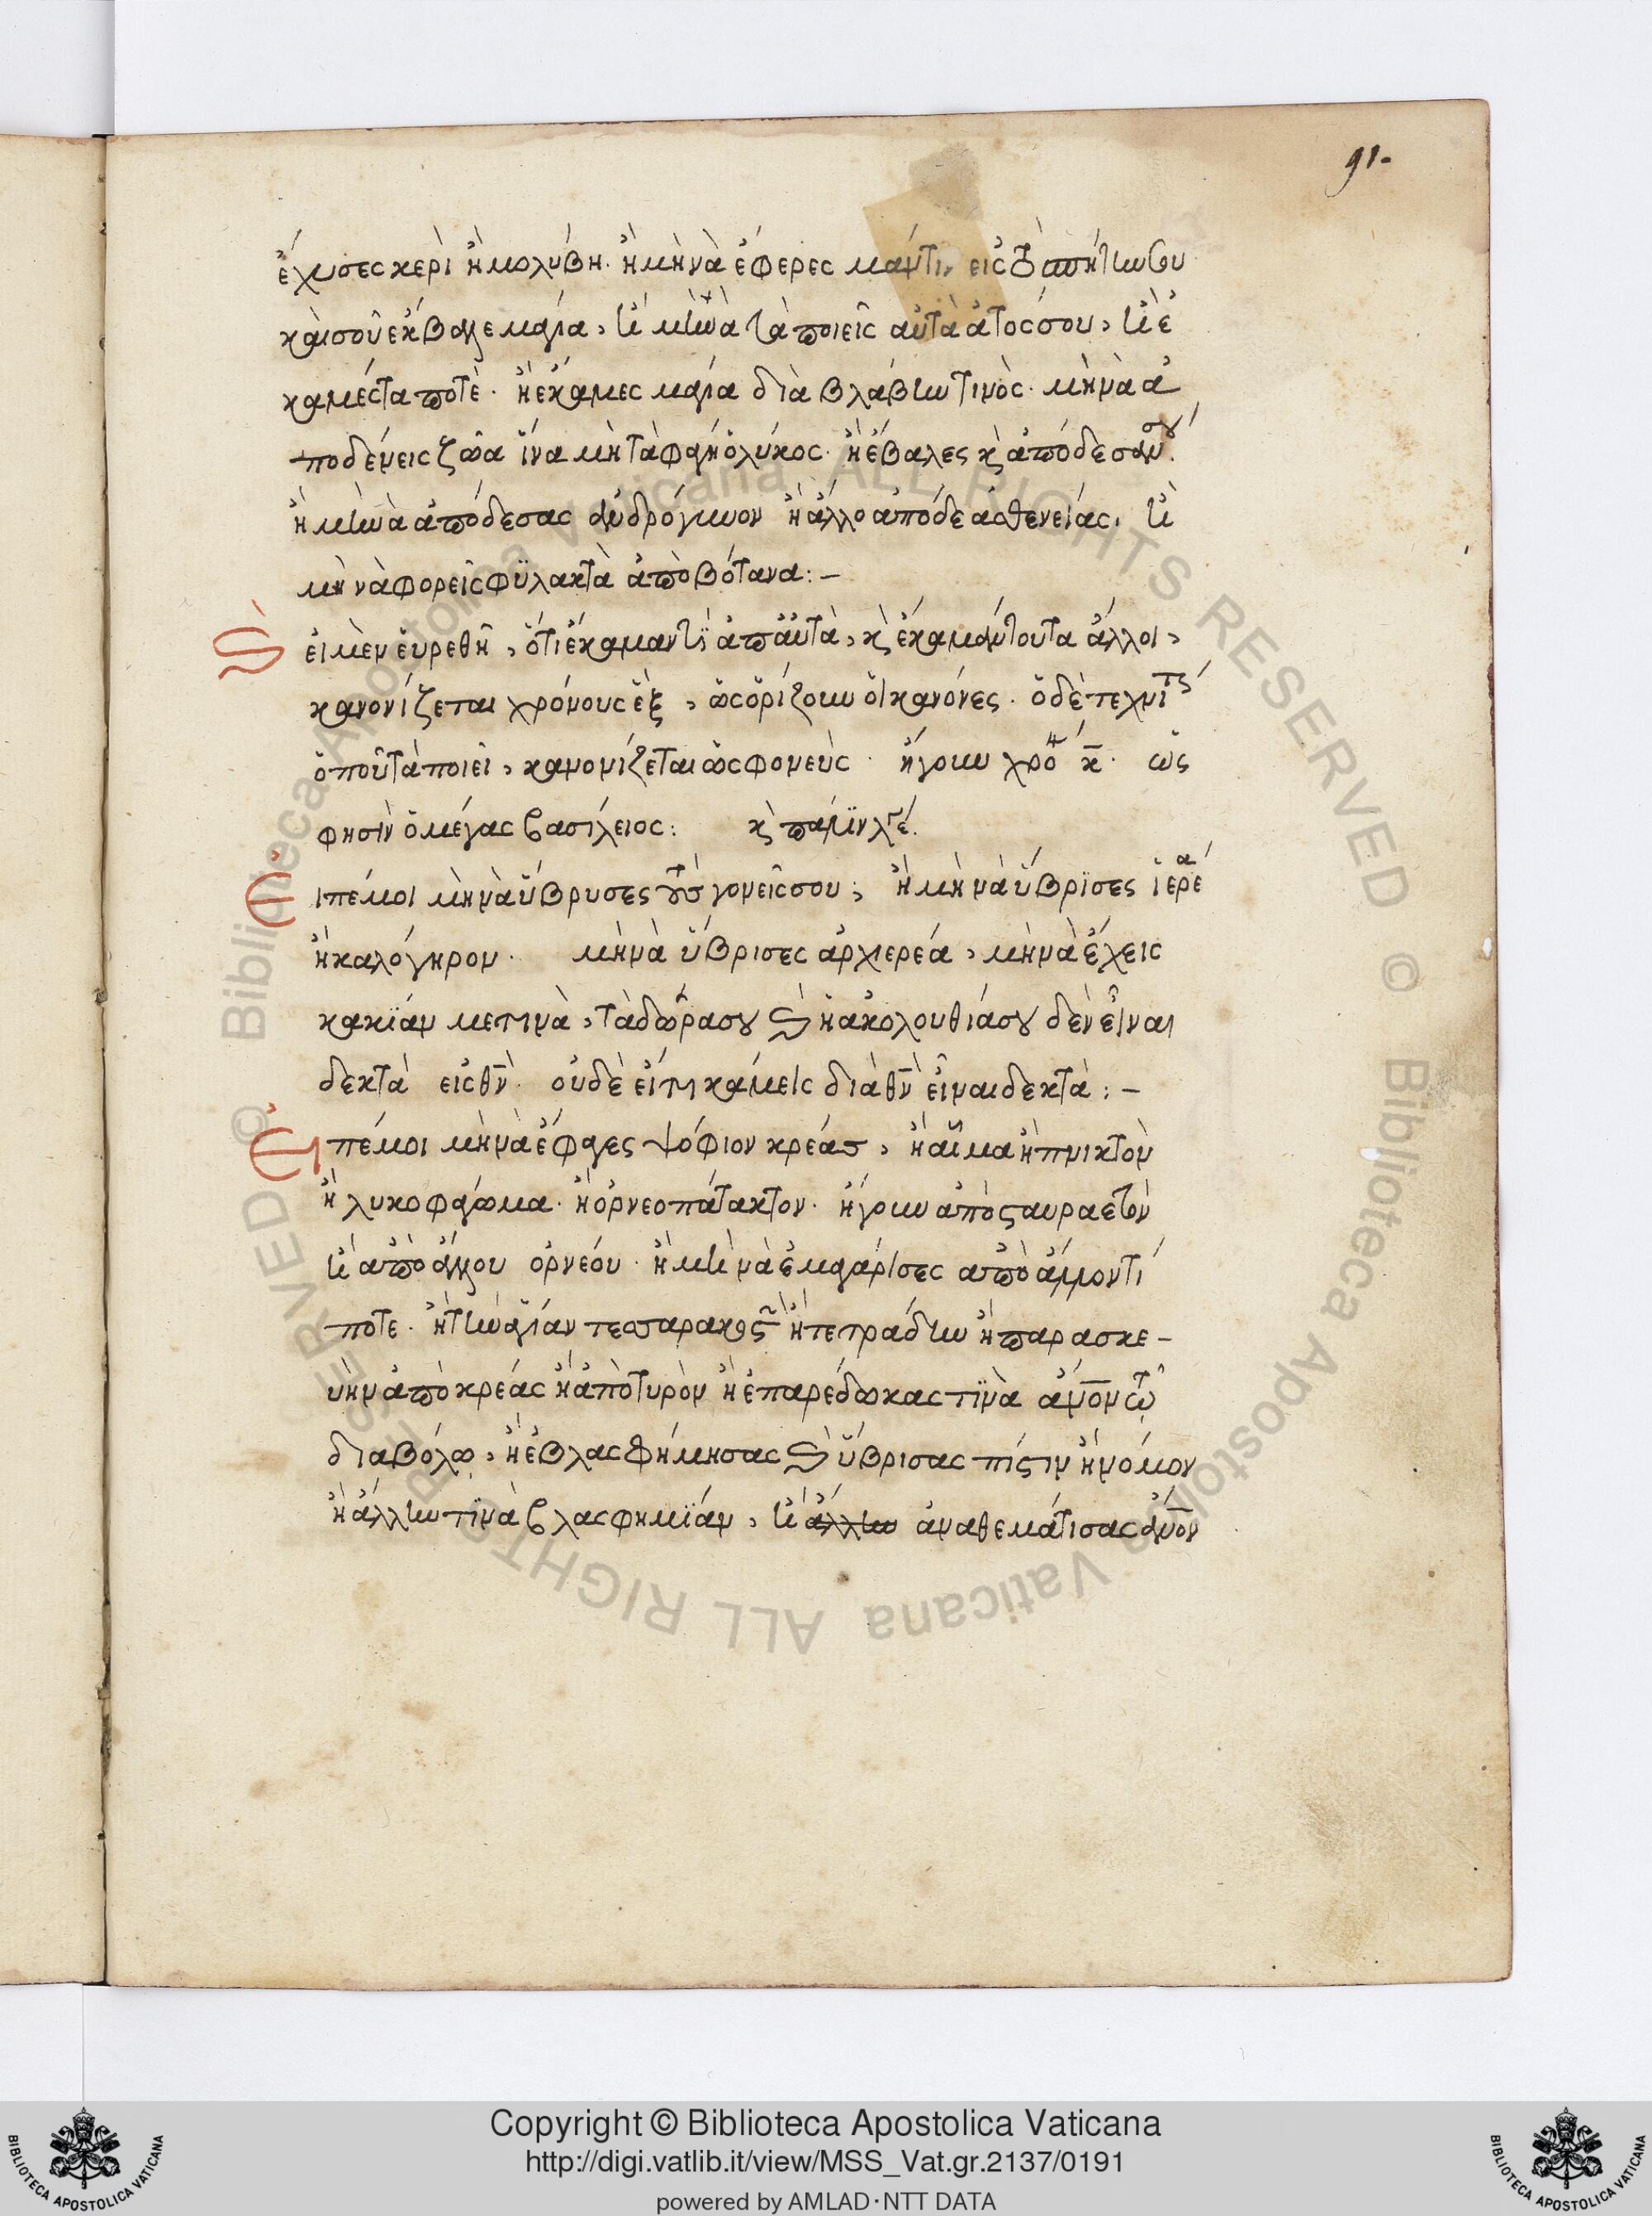 91.
ἔχυσες κερὶ ἢ μολύβη. ἢ μὴ νὰ ἔφερες μάντιν εἰς τὸ σπήτιν σου
καὶ σοῦ ἐκβαλε μαγία, ἢ μὴν νὰ τὰ ποιεῖς αὐτὰ ἀτός σου, ἢ ἐ
καμές τα ποτὲ. ἢ ἐκαμες μαγία διὰ βλάβην τινὸς. μὴ νὰ ἀ
ποδένεις ζῶα ἵνα μὴ τὰ φάγη ὁ λύκος. ἢ ἔβαλες κ̀ ἀπόδεσάν σου.
ἢ μὴν νὰ ἀπόδεσας ἀνδρόγυνον ἢ ἄλλο ἀπόδε ἀσθενείας. ἢ
μὴ νὰ φορεῖς φϋλακτὰ ἀπὸ βότανα:—
Σ εἰ μὲν εὑρεθῆ, ὅτι ἔκαμαν τὶ ἀπ αὐτὰ, κ̀ ἔκαμάν του τα ἄλλοι,
κανονίζεται χρόνους ἓξ, ὡς ὁρίζουν οἱ κανόνες. ὁ δὲ τεχνίτς
ὁποῦ τὰ ποιεῖ, κανονίζεται ὡς φονεὺς. ἤγουν χρό κ̅. ὡς
φησὶν ὁ μέγας βασίλειος: κ̀ πάλιν λέγε.
Ειπέ μοι μὴ νὰ ὕβρυσες τοὺς γονεῖς σου; ἢ μὴ νὰ ὕβρϊσες ἱερέα
ἢ καλόγηρον. μὴ νὰ ὕβρισες ἀρχιερέα, μὴ νὰ ἔχεις
κακϊάν με τινὰ, τὰ δῶρα σου Σ ἡ ἀκολουθιά σου δὲν εἶναι
δεκτὰ εἰς θν̅. οὐδὲ εἴτι κάμεις διὰ θν̅ εἶναι δεκτὰ:—
Ειπέ μοι μὴ νὰ ἔφαγες ψόφιον κρέας, ἢ αἷμα ἢ πνικτὸν
ἢ λυκοφάγωμα. ἢ ὀρνεοπάτακτον. ἤγουν ἀπὸ σαυραετὸν
ἢ ἀπὸ ἄλλου ὀρνέου. ἢ μὴ νὰ ἐμαγάρισες ἀπὸ ἄλλον τί
ποτε. ἢ τὴν ἁγίαν τεσσαρακοστὴν ἢ τετράδην ἢ παρασκε-
υὴν ἀπὸ κρέας ἢ ἀπὸ τυρὸν ἢ ἐπαρέδωκας τϊνὰ ἄνο̅ν τῷ
διαβόλω, ἢ ἐβλασφήμησας Σ ὕβρισας πίστιν ἢ νόμον
ἢ ἄλλην τϊνὰ βλασφημϊάν, ἢ ἄλλην ἀναθεμάτισας ἄνο̅ν
Copyright © Biblioteca Apostolica Vaticana
http://digi.vatlib.it/view/MSS_Vat.gr.2137/0191
powered by AMLAD·NTT DATA
BIBLIOTECA APOSTOLICA VATICANA
BIBLIOTECA APOSTOLICA VATICANA